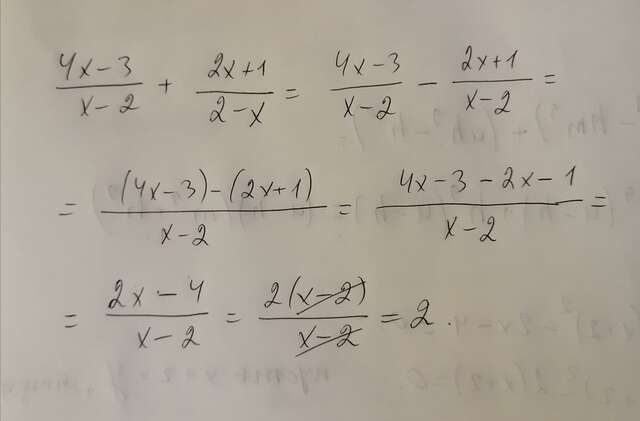 (4x-3)/(x-2) + (2x+1)/(2-x) = (4x-3)/(x-2) - (2x+1)/(x-2) =
= ((4x-3)-(2x+1))/(x-2) = (4x-3-2x-1)/(x-2) =
= (2x-4)/(x-2) = (2(x-2))/(x-2) = 2.